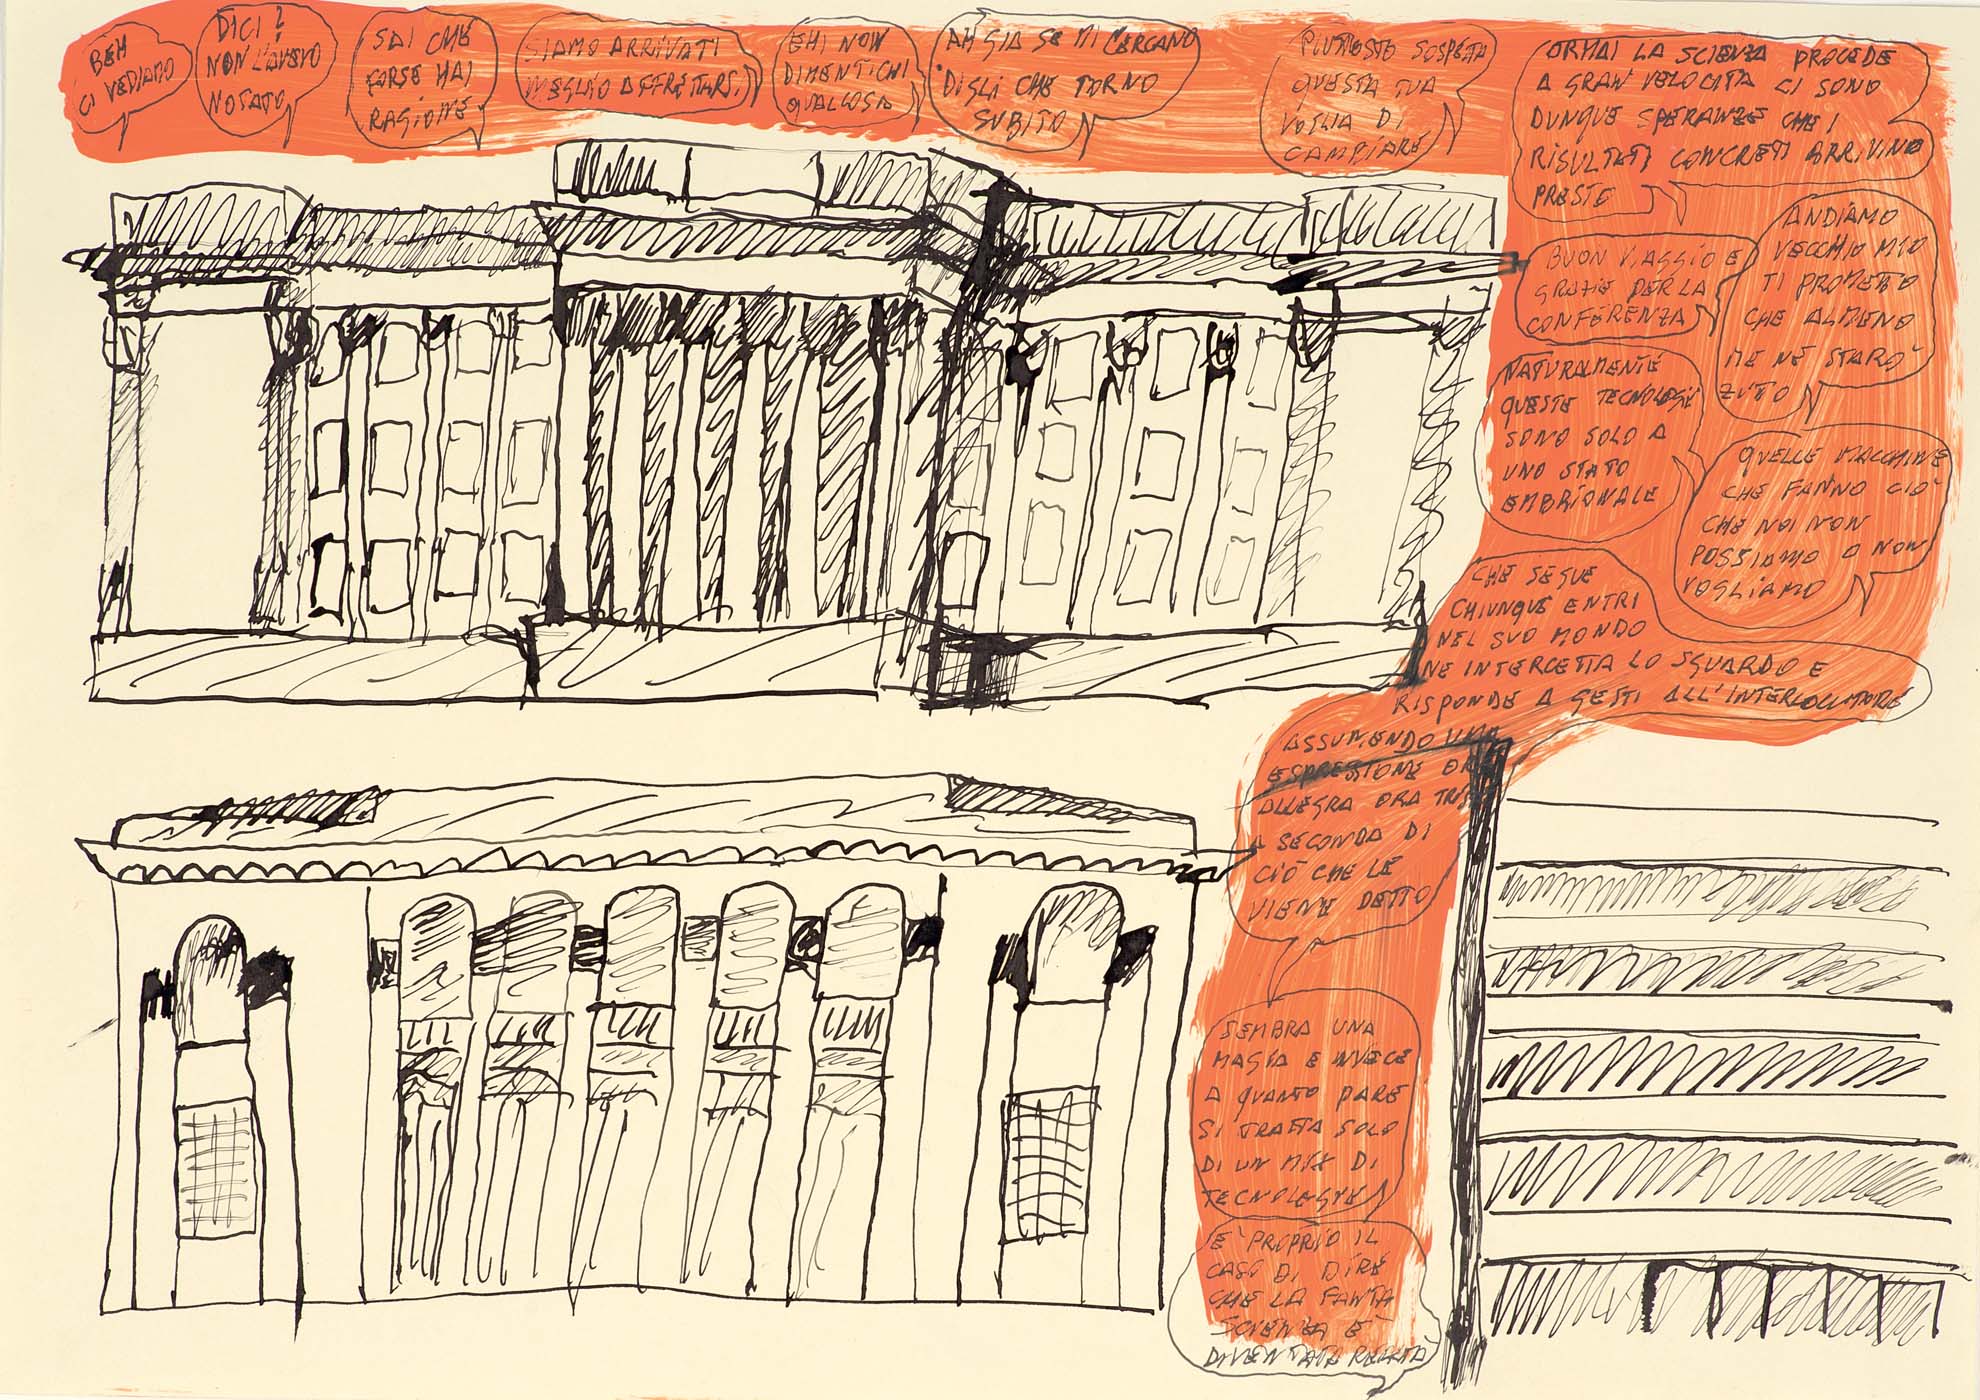 BEH
CI VEDIAMO
DICI?
NON L'AVEVO
NOTATO
SAI CHE
FORSE HAI
RAGIONE
SIAMO ARRIVATI
MEGLIO AFFRETTARSI
EHI NON
DIMENTICHI
QUALCOSA
AH GIA SE MI CERCANO
DIGLI CHE TORNO
SUBITO
PIUTTOSTO SOSPETTA
QUESTA TUA
VOGLIA DI
CAMBIARE
ORMAI LA SCIENZA PROCEDE
A GRAN VELOCITA CI SONO
DUNQUE SPERANZE CHE I
RISULTATI CONCRETI ARRIVINO
PRESTO
ANDIAMO
VECCHIO MIO
TI PROMETTO
CHE ALMENO
ME NE STARO'
ZITTO
BUON VIAGGIO E
GRAZIE PER LA
CONFERENZA
NATURALMENTE
QUESTE TECNOLOGIE
SONO SOLO A
UNO STATO
EMBRIONALE
QUELLE MACCHINE
CHE FANNO CIO'
CHE NOI NON
POSSIAMO O NON
VOGLIAMO
CHE SEGUE
CHIUNQUE ENTRI
NEL SUO MONDO
NE INTERCETTA LO SGUARDO E
RISPONDE A GESTI ALL'INTERLOCUTORE
ASSUMENDO UNA
ESPRESSIONE ORA
ALLEGRA ORA TRISTE
A SECONDA DI
CIÒ CHE LE
VIENE DETTO
SEMBRA UNA
MAGIA E INVECE
A QUANTO PARE
SI TRATTA SOLO
DI UN MIX DI
TECNOLOGIE
E' PROPRIO IL
CASO DI DIRE
CHE LA FANTA
SCIENZA E'
DIVENTATA REALTÀ